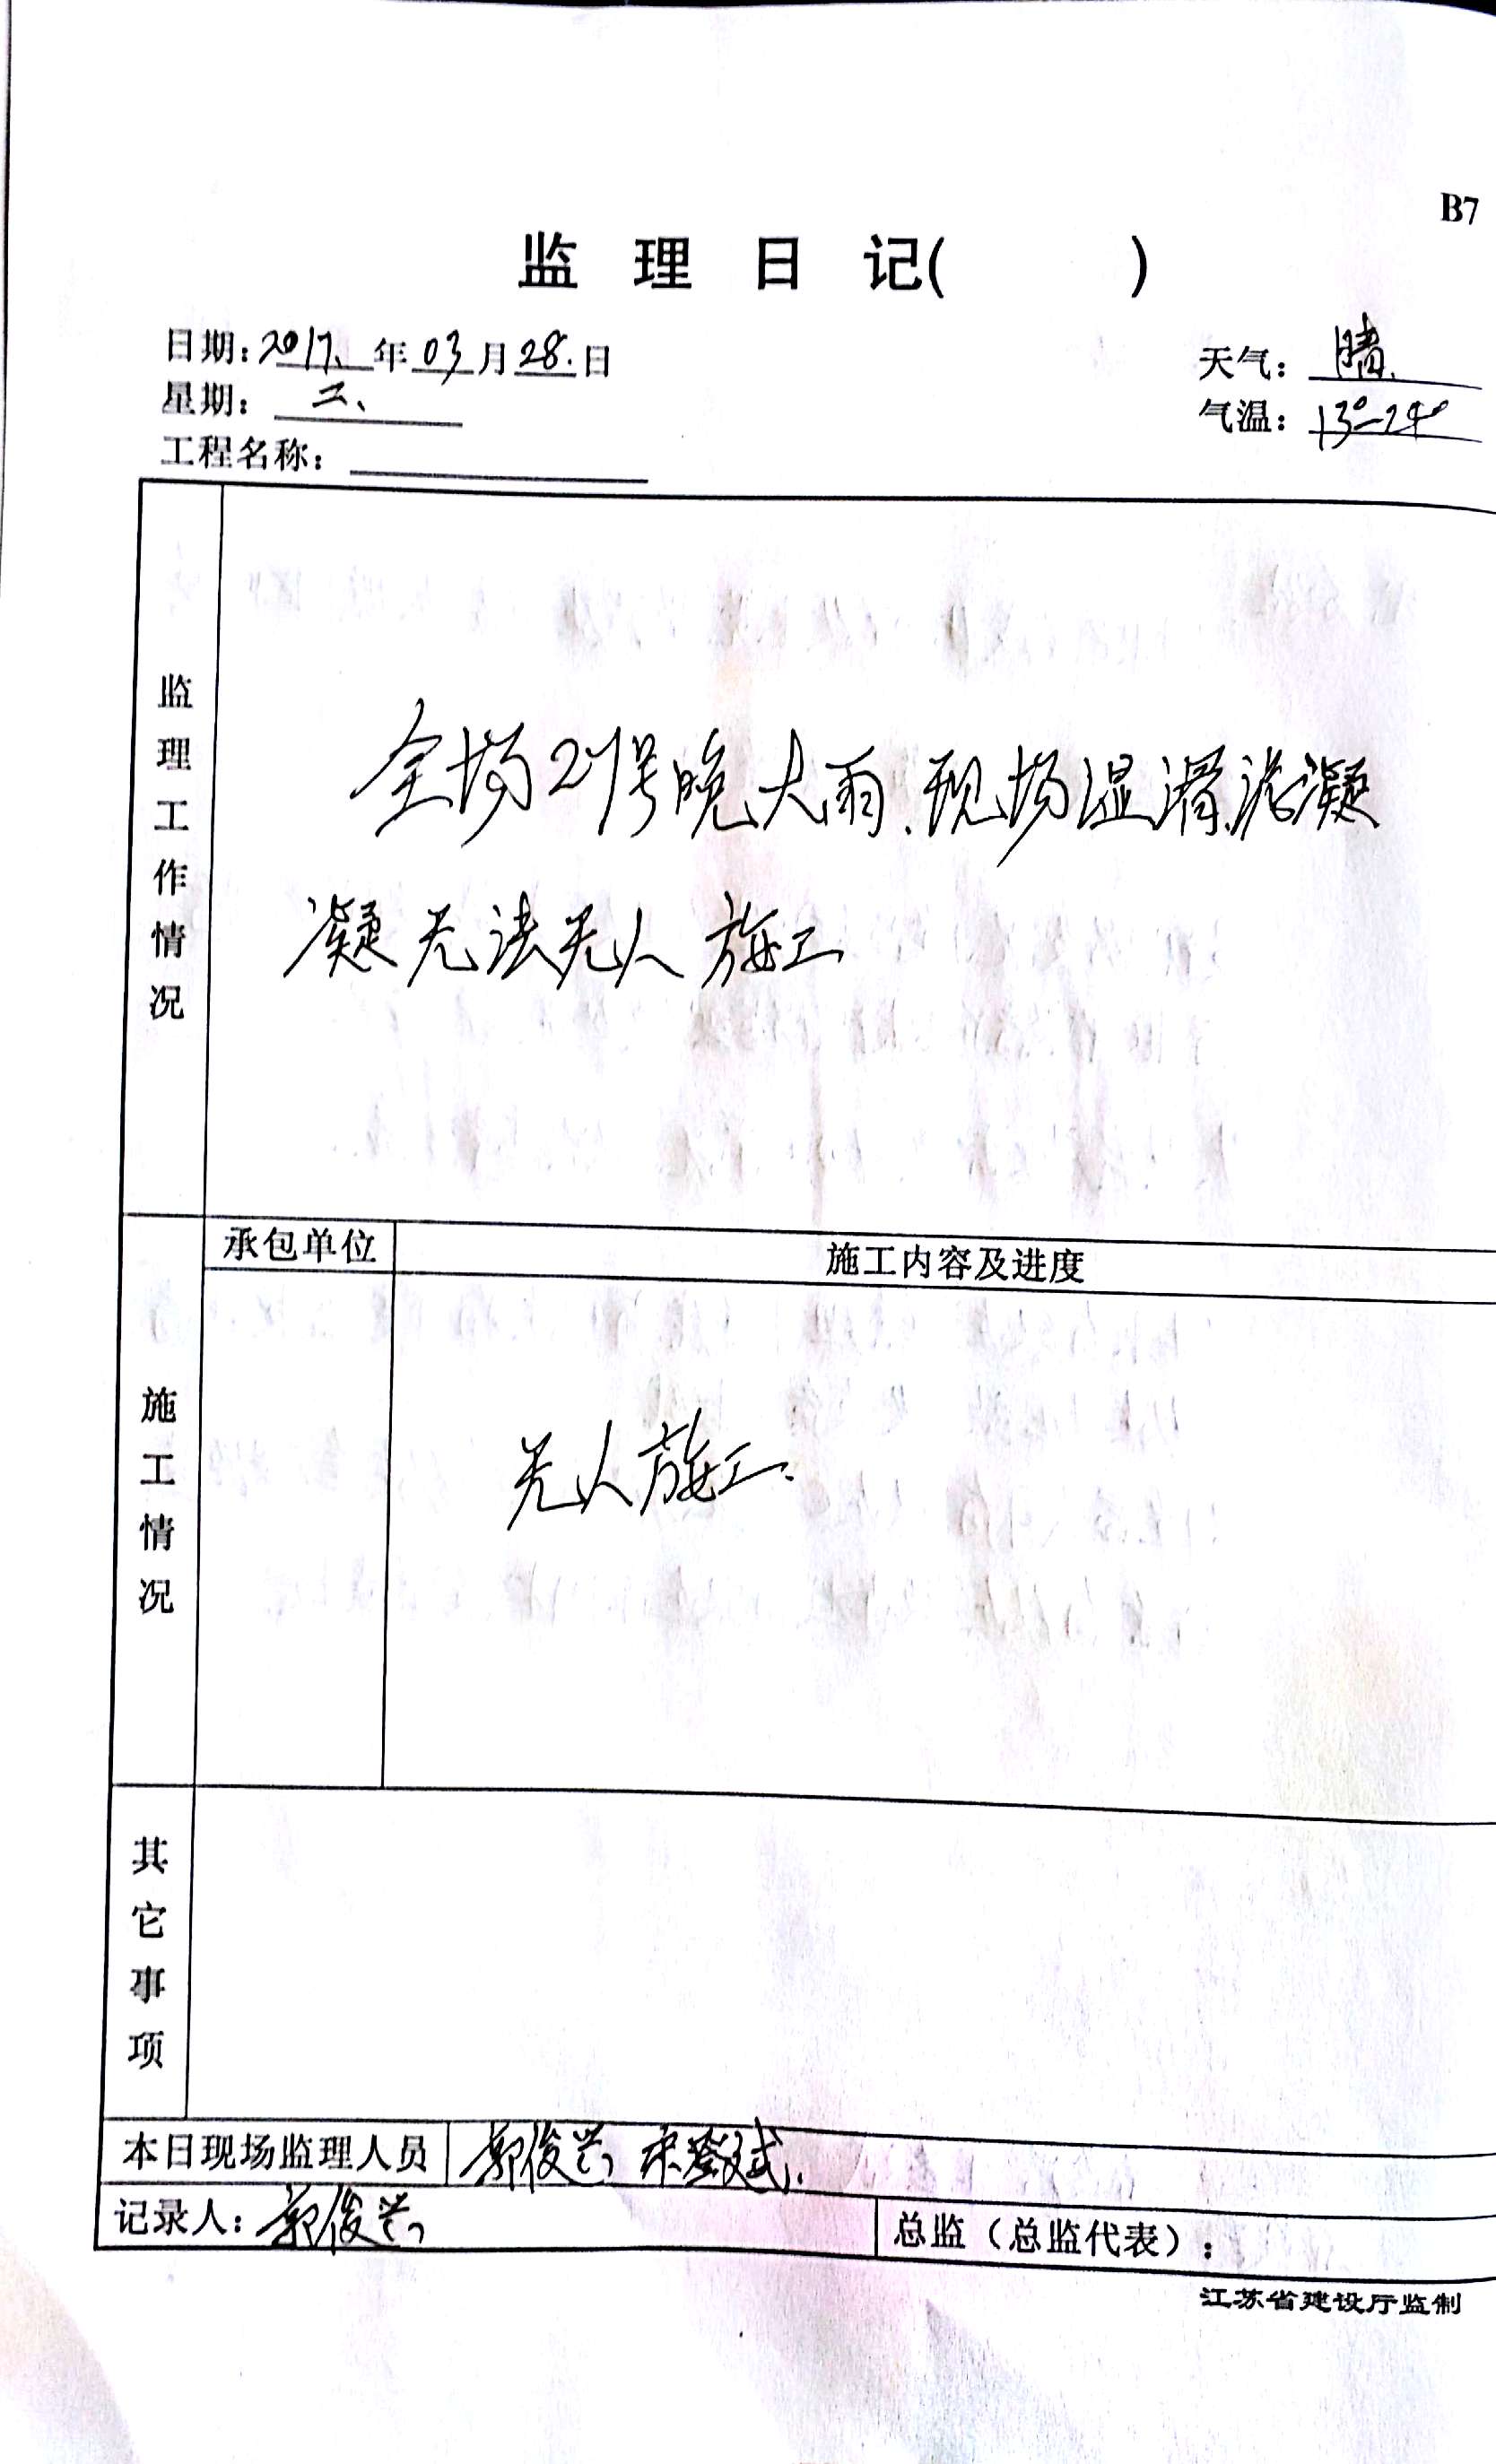 B7
监理日记( )
日期:2017、年03月28.日
天气:晴.
星期:二、
气温:13°-24°
工程名称:
监理工作情况
全场27号晚大雨、现场湿滑、泥凝
凝无法无人施工
承包单位
施工内容及进度
施工情况
无人施工.
其它事项
本日现场监理人员 郭俊兴
记录人:郭俊兴
总监(总监代表):
江苏省建设厅监制